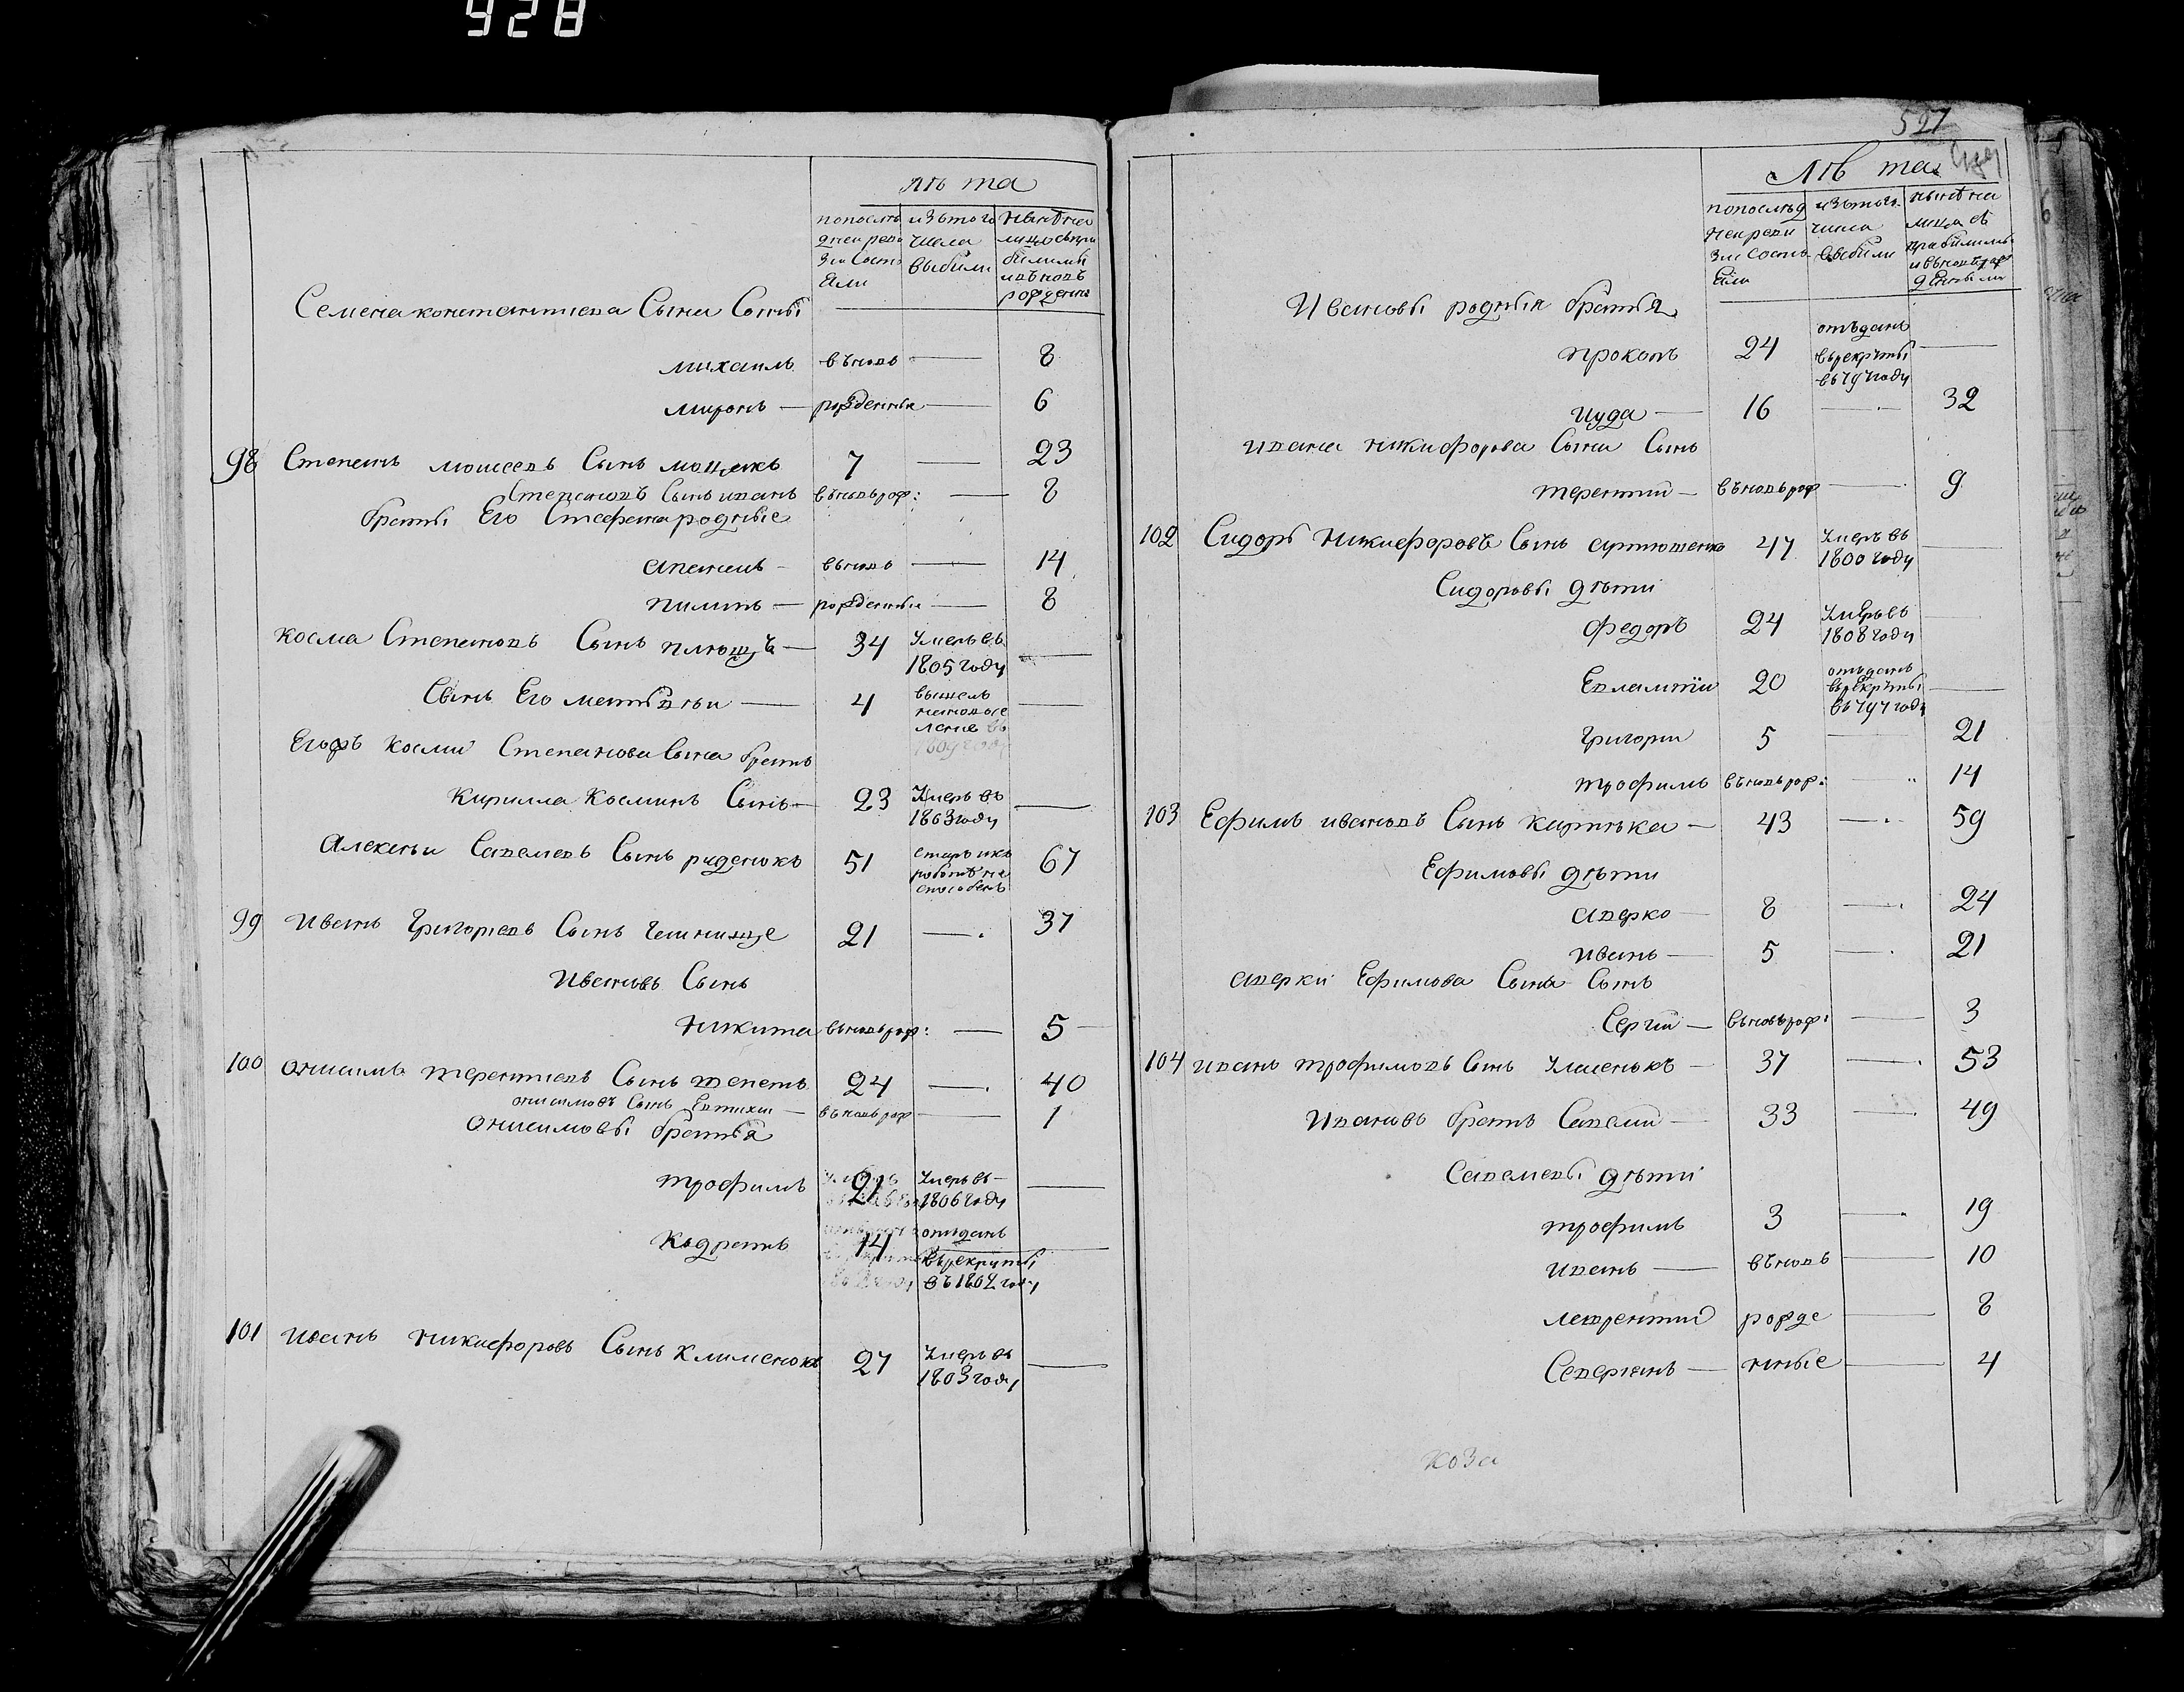 928
лѣта
попослѣ изътого нынѣна
днеи реви числа лицосъпри
зіи состо выбыли былыми
яли ивъновь
рожденны
Семена константиева Сына Сыны
михаилъ въновь — 8
миронъ — рожденныя — 6
98 Степанъ моисеевъ Сынъ 7 — 23
Степановъ Сынъ иванъ въновь рож: — 8
братьи Его Стефана родные
апанасъ - вьновь — 14
пилипъ — рожденныи — 8
косма Степановъ Сынъ плющъ — 34 Умеръ въ
1805 году —
Сынъ Его матвѣи — 4 вышелъ
нановосе
ление въ —
1809 году
Егожъ космы Степанова Сына братъ
Кирилла Косминъ Сынъ — 23 Умеръ въ
1803 году —
Алексѣи Савелиевъ Сынъ руденокъ 51 старъ икъ 67
работѣ не
способенъ
99 Иванъ Григориевъ Сынъ 21 — 37
Ивановъ Сынъ
Никита вьновь рож: — 5
100 Онисимъ терентиевъ Сынъ шепетъ 24 — 40
онисимовъ Сынъ Евтихи — вьновь рож — 1
Онисимовы братья
трофимъ 21 Умеръ въ —
1806 году —
Кодратъ 14 отъданъ
въ рекруты —
въ 1802 году
101 Иванъ Никифоровъ Сынъ Клименокъ 27 Умеръ въ
1803 году —
527
Лѣта
попослѣд изътого нынѣна
неи реви числа лицо съ
зіи состо выбыли прибылыми
яли ивъновь рож
денными
Ивановы родныя братья
прокопъ 24 отъданъ
въ рекруты —
въ 797 году
Иуда — 16 — 32
ивана никифорова Сына Сынъ
терентии — вьновь рож — 9
102 Сидоръ Никифоровъ Сынъ артюшенко 47 Умеръ въ
1800 году —
Сидоровы дѣти
федоръ 24 Умеръ въ
1808 году —
Евлампіи 20 отъданъ
въ рекруты —
въ 797 году
Григории 5 — 21
трофимъ вьновь рож: — 14
103 Ефимъ ивановъ Сынъ карпѣка — 43 — 59
Ефимовы дѣти
аверко — 8 — 24
иванъ — 5 — 21
аверки Ефимова Сына Сынъ
Сергіи — вьновь рож: — 3
104 иванъ трофимовъ Сынъ 37 — 53
Ивановъ братъ Савелии — 33 — 49
Савелиевы дѣти
трофимъ 3 — 19
иванъ — вьновь — 10
лаврентии рожде — 8
Северіанъ — нные — 4
коза